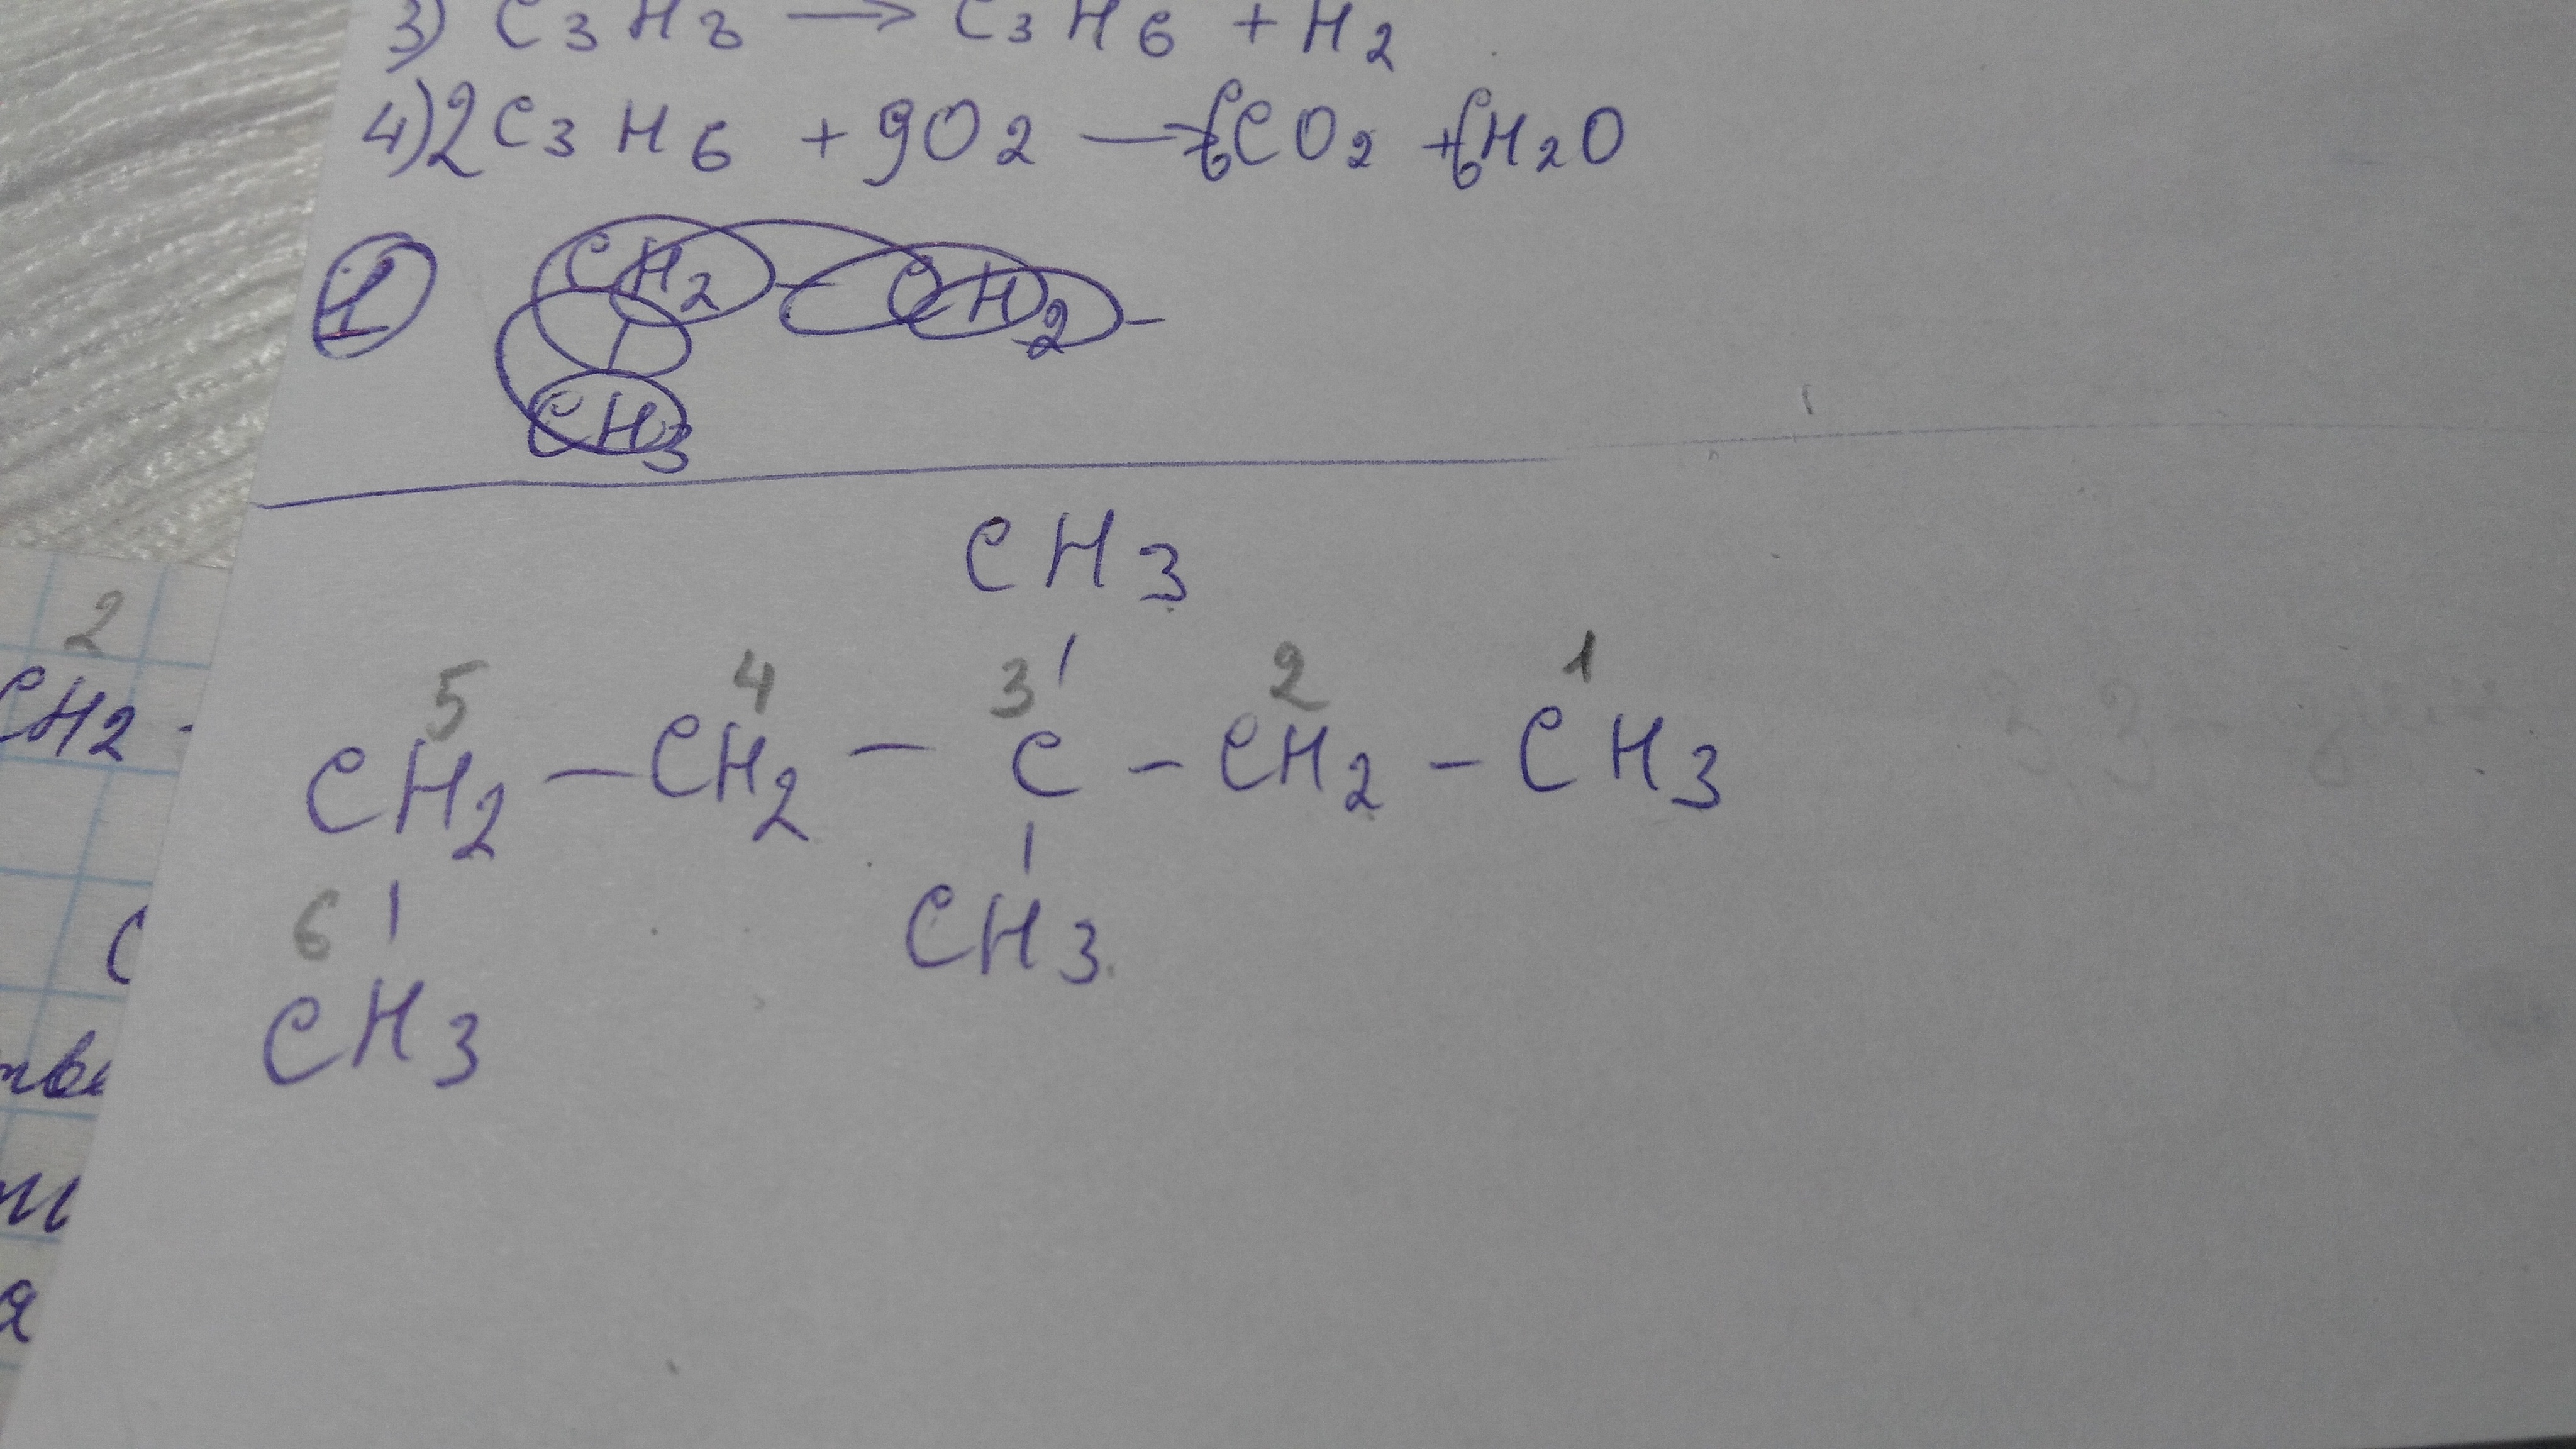 3) C3H8 → C3H6 + H2
4) 2C3H6 + 9O2 → 6CO2 + 6H2O
1 CH2 - CH2 -
CH3
CH3
2
5 4 3 2 1
CH2 - CH2 - C - CH2 - CH3
CH2 -
6
CH3
CH3